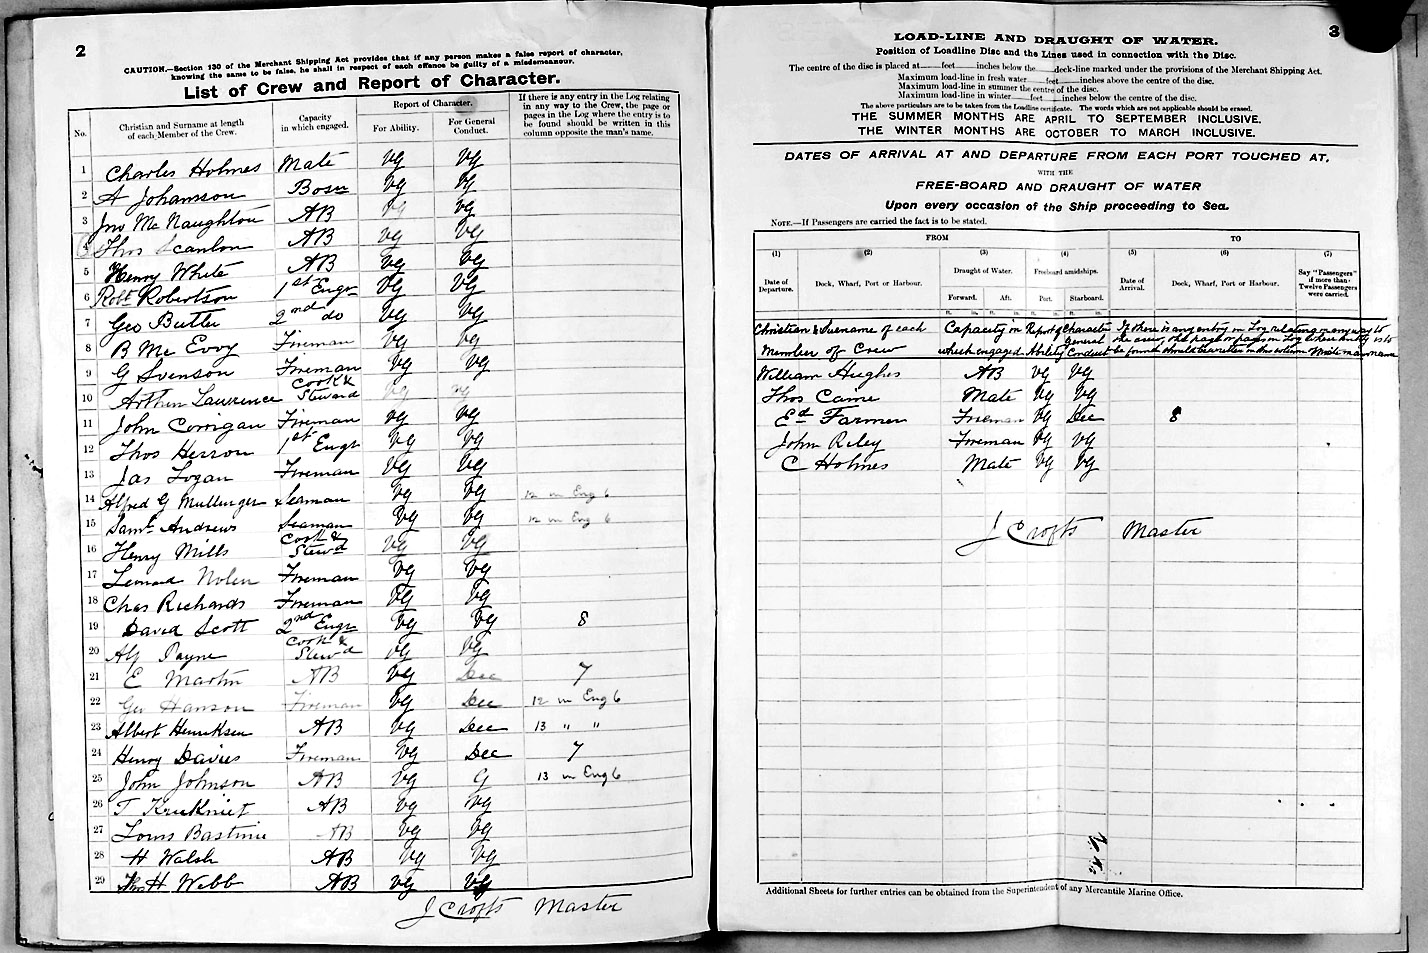 2
CAUTION.—Section 130 of the Merchant Shipping Act provides that if any person makes a false report of character,
knowing the same to be false, he shall in respect of each offence be guilty of a misdemeanour.
List of Crew and Report of Character.
No.
Christian and Surname at length
of each Member of the Crew.
Capacity
in which engaged.
Report of Character.
For Ability.
For General
Conduct.
If there is any entry in the Log relating
in any way to the Crew, the page or
pages in the Log where the entry is to
be found should be written in this
column opposite the man's name.
1 Charles Holmes Mate VG VG
2 A Johansson Bosn VG VG
3 Jno Mc Naughton AB VG VG
4 Thos Scanlon AB VG VG
5 Henry White AB VG VG
6 Robt Robertson 1st Engr VG VG
7 Geo Butler 2nd do VG VG
8 B Mc Evoy Fireman VG VG
9 G Svenson Fireman VG VG
10 Arthur Lawrence Cook & Steward VG VG
11 John Corrigan Fireman VG VG
12 Thos Herron 1st Engr VG VG
13 Jas Logan Fireman VG VG
14 Alfred G Mullenger Seaman VG VG 12 in Eng 6
15 Saml Andrews Seaman VG VG 12 in Eng 6
16 Henry Mills Cook & Stewd VG VG
17 Leonard Nolen Fireman VG VG
18 Chas Richards Fireman VG VG
19 David Scott 2nd Engr VG VG 8
20 Alf Payne Cook & Stewd VG VG
21 E Martin AB VG Dec 7
22 Geo Hanson Fireman VG Dec 12 in Eng 6
23 Albert Henriksen AB VG Dec 13 " "
24 Henry Davies Fireman VG Dec 7
25 John Johnson AB VG G 13 in Eng 6
26 T AB VG VG
27 Louis Bastinie AB VG VG
28 H Walsh AB VG VG
29 Thos H Webb AB VG VG
J Crofts Master
3
LOAD-LINE AND DRAUGHT OF WATER.
Position of Loadline Disc and the Lines used in connection with the Disc.
The centre of the disc is placed at feet inches below the deck-line marked under the provisions of the Merchant Shipping Act.
Maximum load-line in fresh water feet inches above the centre of the disc.
Maximum load-line in summer the centre of the disc.
Maximum load-line in winter feet inches below the centre of the disc.
The above particulars are to be taken from the Loadline certificate. The words which are not applicable should be erased.
THE SUMMER MONTHS ARE APRIL TO SEPTEMBER INCLUSIVE.
THE WINTER MONTHS ARE OCTOBER TO MARCH INCLUSIVE.
DATES OF ARRIVAL AT AND DEPARTURE FROM EACH PORT TOUCHED AT,
WITH THE
FREE-BOARD AND DRAUGHT OF WATER
Upon every occasion of the Ship proceeding to Sea.
NOTE.—If Passengers are carried the fact is to be stated.
FROM TO
(1) (2) (3) (4) (5) (6) (7)
Date of
Departure.
Dock, Wharf, Port or Harbour.
Draught of Water.
Forward. Aft.
Freeboard amidships.
Port. Starboard.
Date of
Arrival.
Dock, Wharf, Port or Harbour.
Say "Passengers"
if more than
Twelve Passengers
were carried.
ft. in. ft. in. ft. in. ft. in.
Christian & Surname of each Capacity in Report of Character If there is any entry in Log relating in any way to
Member of Crew which engaged Ability General Conduct the crew, the page or pages in Log where entry is to
be found should be written in this column opposite man's name
William Hughes AB VG VG
Thos Caine Mate VG VG
Ed Farmer Fireman VG Dec 8
John Riley Fireman VG VG
C Holmes Mate VG VG
J Crofts Master
Additional Sheets for further entries can be obtained from the Superintendent of any Mercantile Marine Office.